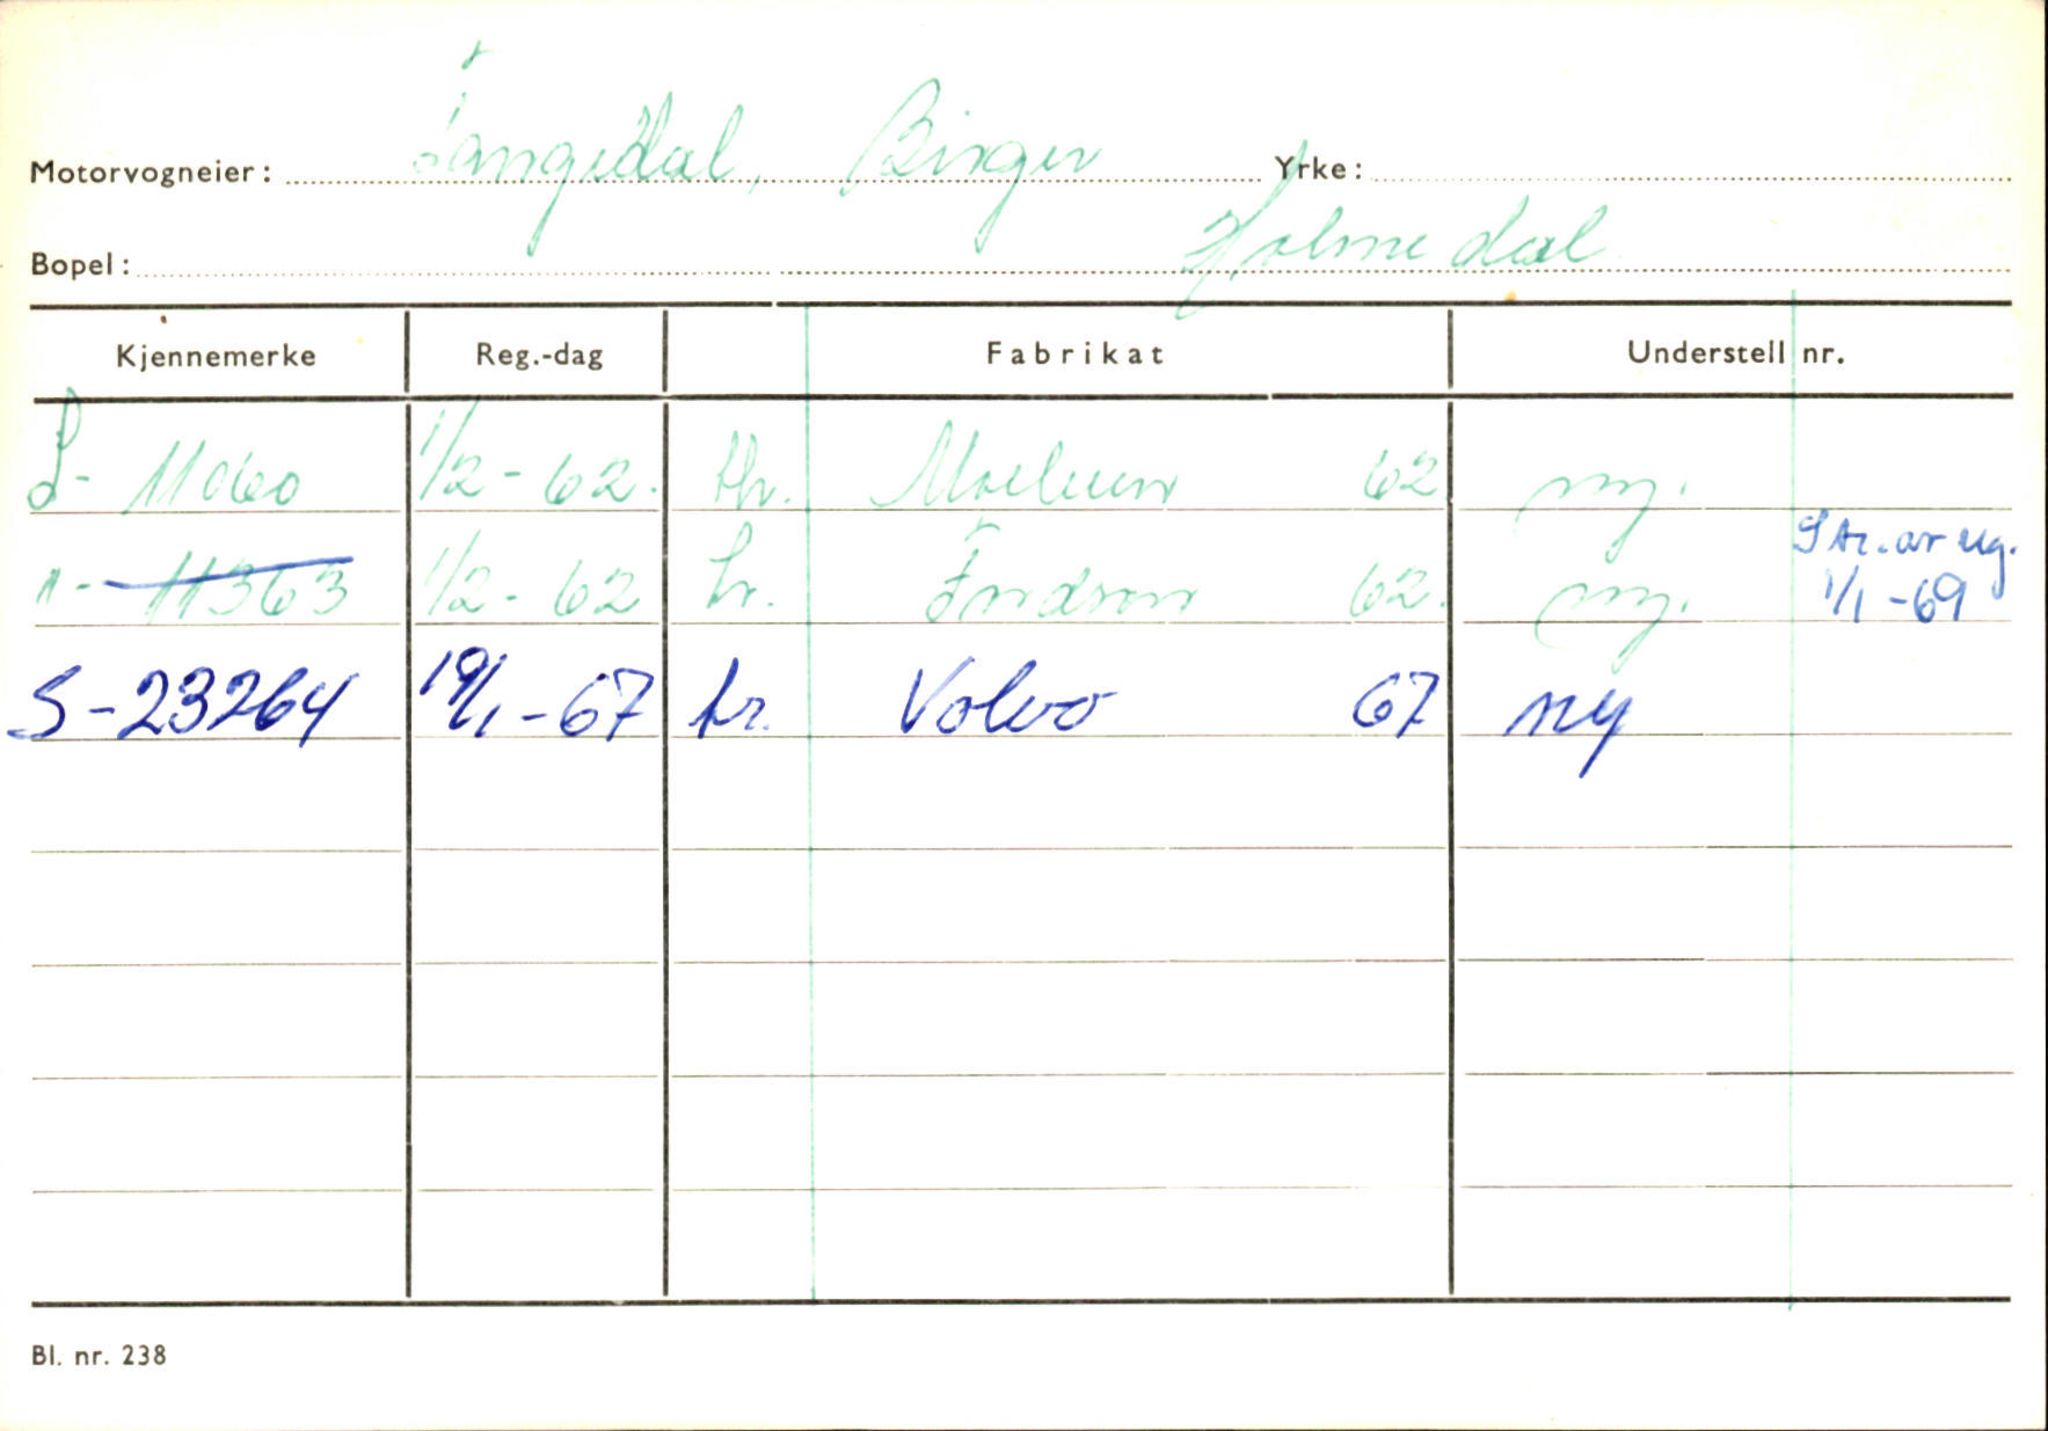 Motorvogneier: Langedal, Birger Yrke:
Bopel: Holmedal
Kjennemerke Reg.-dag Fabrikat Understell nr.
S- 11060 1/2-62. thr. 62 ny.
"- 11363 1/2-62 tr. Fordson 62. ny. Str. av reg. 1/1-69
S-23264 19/1-67 tr. Volvo 67 ny
Bl. nr. 238